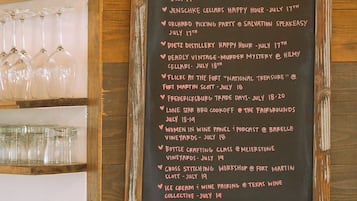 ♥ Jenschke Cellars Happy Hour - July 17th
♥ Orchard Picking Party @ Salvation Speakeasy
July 17th
♥ Dietz Distillery Happy Hour - July 17th
♥ Deadly Vines: Murder Mystery @ Hilmy
Cellars - July 18th
♥ Flicks at the Fort "National Treasure" @
Fort Martin Scott - July 18
♥ Fredericksburg Trade Days - July 18-20
♥ Lone Star BBQ Cookoff @ The Fairgrounds
July 18-19
♥ Women in Wine Panel & Podcast @ Barelle
Vineyards - July 19
♥ Bottle Crafting Class @ Meierstone
Vineyards - July 19
♥ Cross Stitching Workshop @ Fort Martin
Scott - July 19
♥ Ice Cream & Wine Pairing @ Texas Wine
Collective - July 19